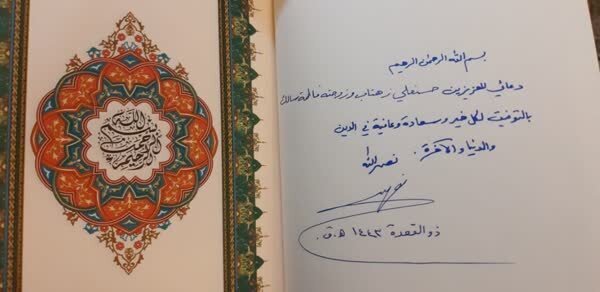 بسم الله الرحمن الرحيم
بسم الله الرحمن الرحيم
دعائي للعزيزين حسنعلي زهتاب وزوجته فاطمة سالك
بالتوفيق لكل خير وسعادة وعافية في الدين
والدنيا والآخرة . نصرالله
ذو القعدة ١٤٤٣ ه.ق.